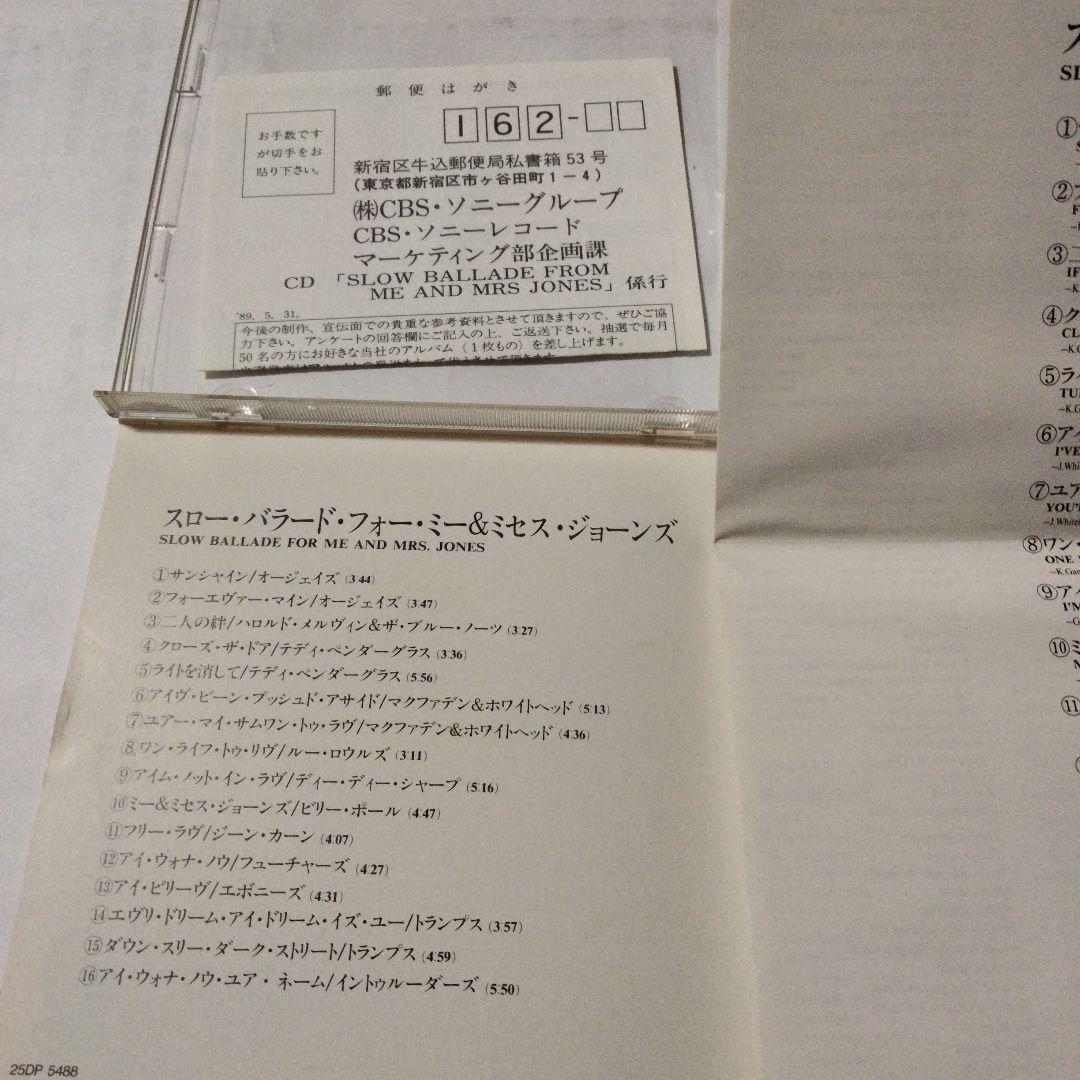 郵便はがき
お手数です
が切手をお
貼り下さい。
162-
新宿区牛込郵便局私書箱53号
(東京都新宿区市ヶ谷田町1-4)
㈱CBS・ソニーグループ
CBS・ソニーレコード
マーケティング部企画課
CD 「SLOW BALLADE FROM
ME AND MRS JONES」係行
'89. 5. 31.
今後の制作、宣伝面での貴重な参考資料とさせて頂きますので、ぜひご協
力下さい。アンケートの回答欄にご記入の上、ご返送下さい。抽選で毎月
50名の方にお好きな当社のアルバム(1枚もの)を差し上げます。
スロー・バラード・フォー・ミー&ミセス・ジョーンズ
SLOW BALLADE FOR ME AND MRS. JONES
①サンシャイン/オージェイズ (3:44)
②フォーエヴァー・マイン/オージェイズ (3:47)
③二人の絆/ハロルド・メルヴィン&ザ・ブルー・ノーツ (3:27)
④クローズ・ザ・ドア/テディ・ペンダーグラス (3:36)
⑤ライトを消して/テディ・ペンダーグラス (5:56)
⑥アイヴ・ビーン・プッシュド・アサイド/マクファデン&ホワイトヘッド (5:13)
⑦ユアー・マイ・サムワン・トゥ・ラヴ/マクファデン&ホワイトヘッド (4:36)
⑧ワン・ライフ・トゥ・リヴ/ルー・ロウルズ (3:11)
⑨アイム・ノット・イン・ラヴ/ディー・ディー・シャープ (5:16)
⑩ミー&ミセス・ジョーンズ/ビリー・ポール (4:47)
⑪フリー・ラヴ/ジーン・カーン (4:07)
⑫アイ・ウォナ・ノウ/フューチャーズ (4:27)
⑬アイ・ビリーヴ/エボニーズ (4:31)
⑭エヴリ・ドリーム・アイ・ドリーム・イズ・ユー/トランプス (3:57)
⑮ダウン・スリー・ダーク・ストリート/トランプス (4:59)
⑯アイ・ウォナ・ノウ・ユア・ネーム/イントゥルーダーズ (5:50)
25DP 5488
①
②
③二
IF
④ク
⑤ライ
⑥アイ
I'VE
⑦ユア
YOU'
⑧ワン・
ONE
⑨アイ
I'M
⑩ミ
⑪